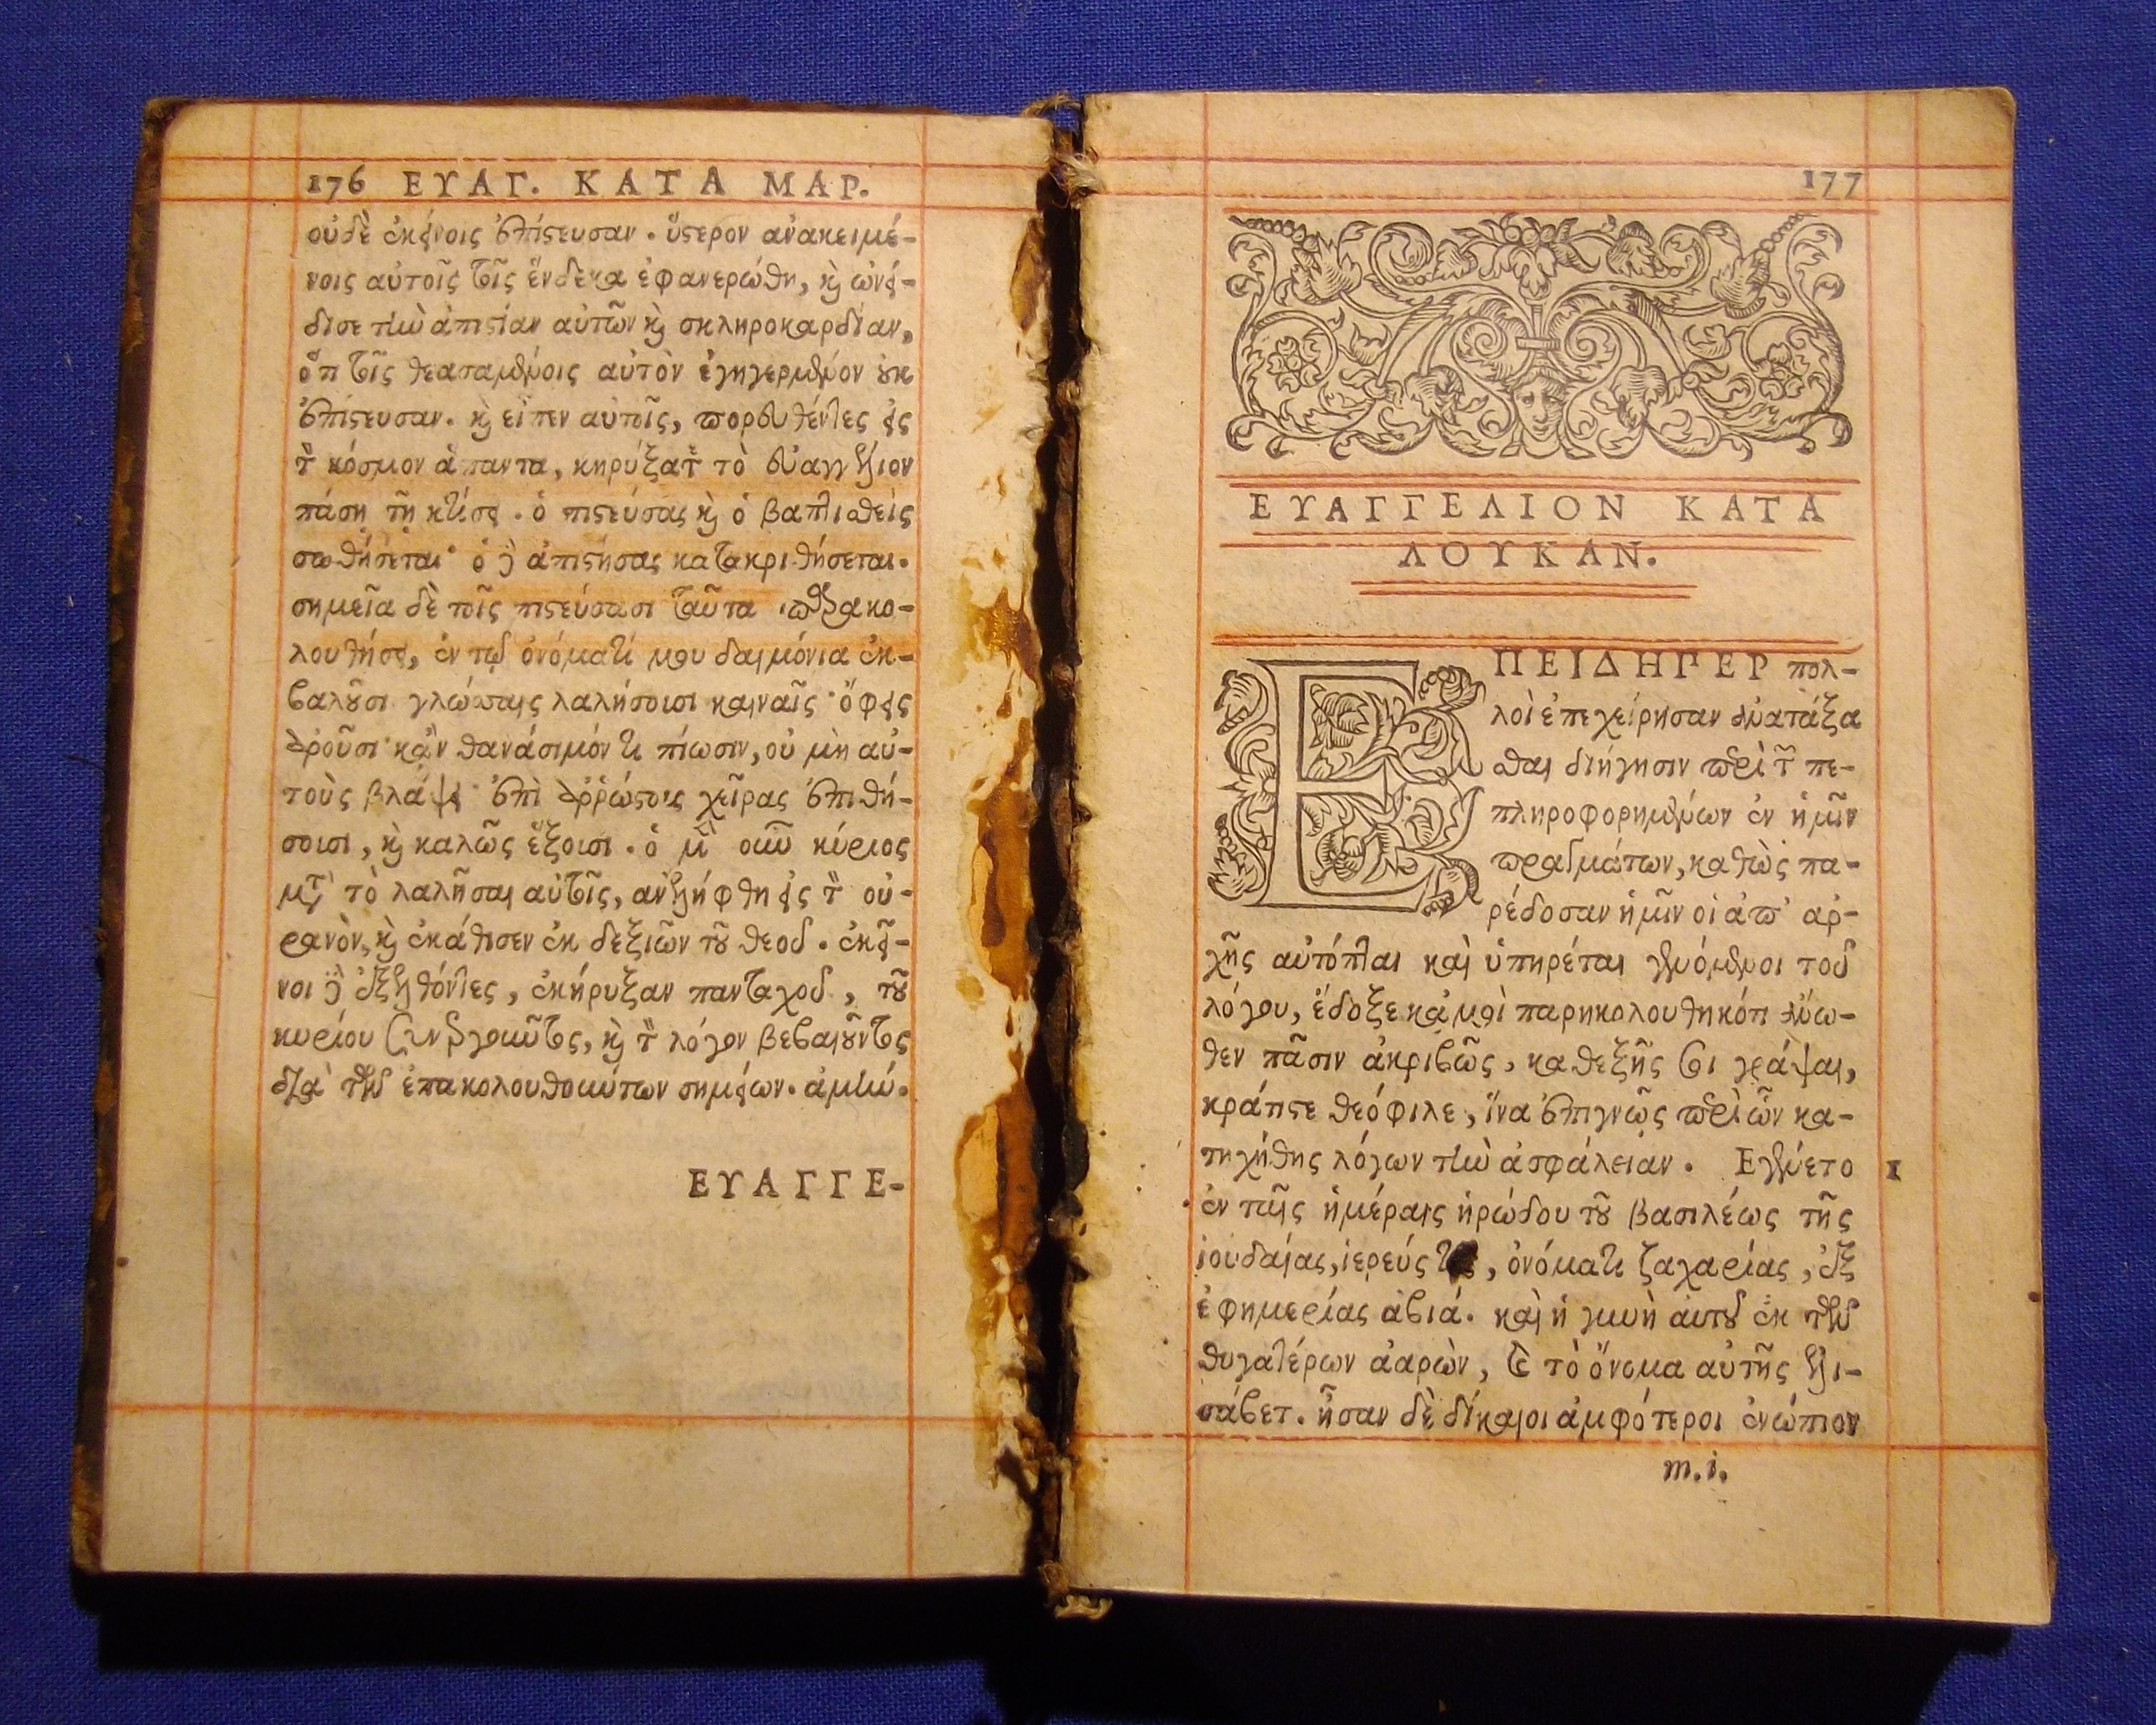 176 ΕΥΑΓ. ΚΑΤΑ ΜΑΡ.
οὐδὲ ἐκείνοις ἐπίστευσαν. ὕστερον ἀνακειμέ-
νοις αὐτοῖς τοῖς ἕνδεκα ἐφανερώθη, καὶ ὠνεί-
δισε τὴν ἀπιστίαν αὐτῶν καὶ σκληροκαρδίαν,
ὅτι τοῖς θεασαμένοις αὐτὸν ἐγηγερμένον οὐκ
ἐπίστευσαν. καὶ εἶπεν αὐτοῖς, πορευθέντες εἰς
τὸν κόσμον ἅπαντα, κηρύξατε τὸ εὐαγγέλιον
πάσῃ τῇ κτίσει. ὁ πιστεύσας καὶ ὁ βαπτισθεὶς
σωθήσεται· ὁ δὲ ἀπιστήσας κατακριθήσεται.
σημεῖα δὲ τοῖς πιστεύσασι ταῦτα παρακο-
λουθήσει, ἐν τῷ ὀνόματί μου δαιμόνια ἐκ-
βαλοῦσι γλώσσαις λαλήσουσι καιναῖς· ὄφεις
ἀροῦσι· κἂν θανάσιμόν τι πίωσιν, οὐ μὴ αὐ-
τοὺς βλάψει· ἐπὶ ἀρρώστους χεῖρας ἐπιθή-
σουσι, καὶ καλῶς ἕξουσι. ὁ μὲν οὖν κύριος
μετὰ τὸ λαλῆσαι αὐτοῖς, ἀνελήφθη εἰς τὸν οὐ-
ρανὸν, καὶ ἐκάθισεν ἐκ δεξιῶν τοῦ θεοῦ. ἐκεῖ-
νοι δὲ ἐξελθόντες, ἐκήρυξαν πανταχοῦ, τοῦ
κυρίου συνεργοῦντος, καὶ τὸν λόγον βεβαιοῦντος
διὰ τῶν ἐπακολουθούντων σημείων. ἀμήν.
ΕΥΑΓΓΕ-
177
ΕΥΑΓΓΕΛΙΟΝ ΚΑΤΑ
ΛΟΥΚΑΝ.
ΕΠΕΙΔΗΠΕΡ πολ-
λοὶ ἐπεχείρησαν ἀνατάξα
σθαι διήγησιν περὶ τῶν πε-
πληροφορημένων ἐν ἡμῖν
πραγμάτων, καθὼς πα-
ρέδοσαν ἡμῖν οἱ ἀπ' ἀρ-
χῆς αὐτόπται καὶ ὑπηρέται γενόμενοι τοῦ
λόγου, ἔδοξε κἀμοὶ παρηκολουθηκότι ἄνω-
θεν πᾶσιν ἀκριβῶς, καθεξῆς σοι γράψαι,
κράτιστε θεόφιλε, ἵνα ἐπιγνῷς περὶ ὧν κα-
τηχήθης λόγων τὴν ἀσφάλειαν. Εγένετο 1
ἐν ταῖς ἡμέραις ἡρώδου τοῦ βασιλέως τῆς
ἰουδαίας, ἱερεύς , ὀνόματι ζαχαρίας, ἐξ
ἐφημερίας ἀβιά. καὶ ἡ γυνὴ αὐτοῦ ἐκ τῶν
θυγατέρων ἀαρὼν, καὶ τὸ ὄνομα αὐτῆς ἐλι-
σάβετ. ἦσαν δὲ δίκαιοι ἀμφότεροι ἐνώπιον
m.i.